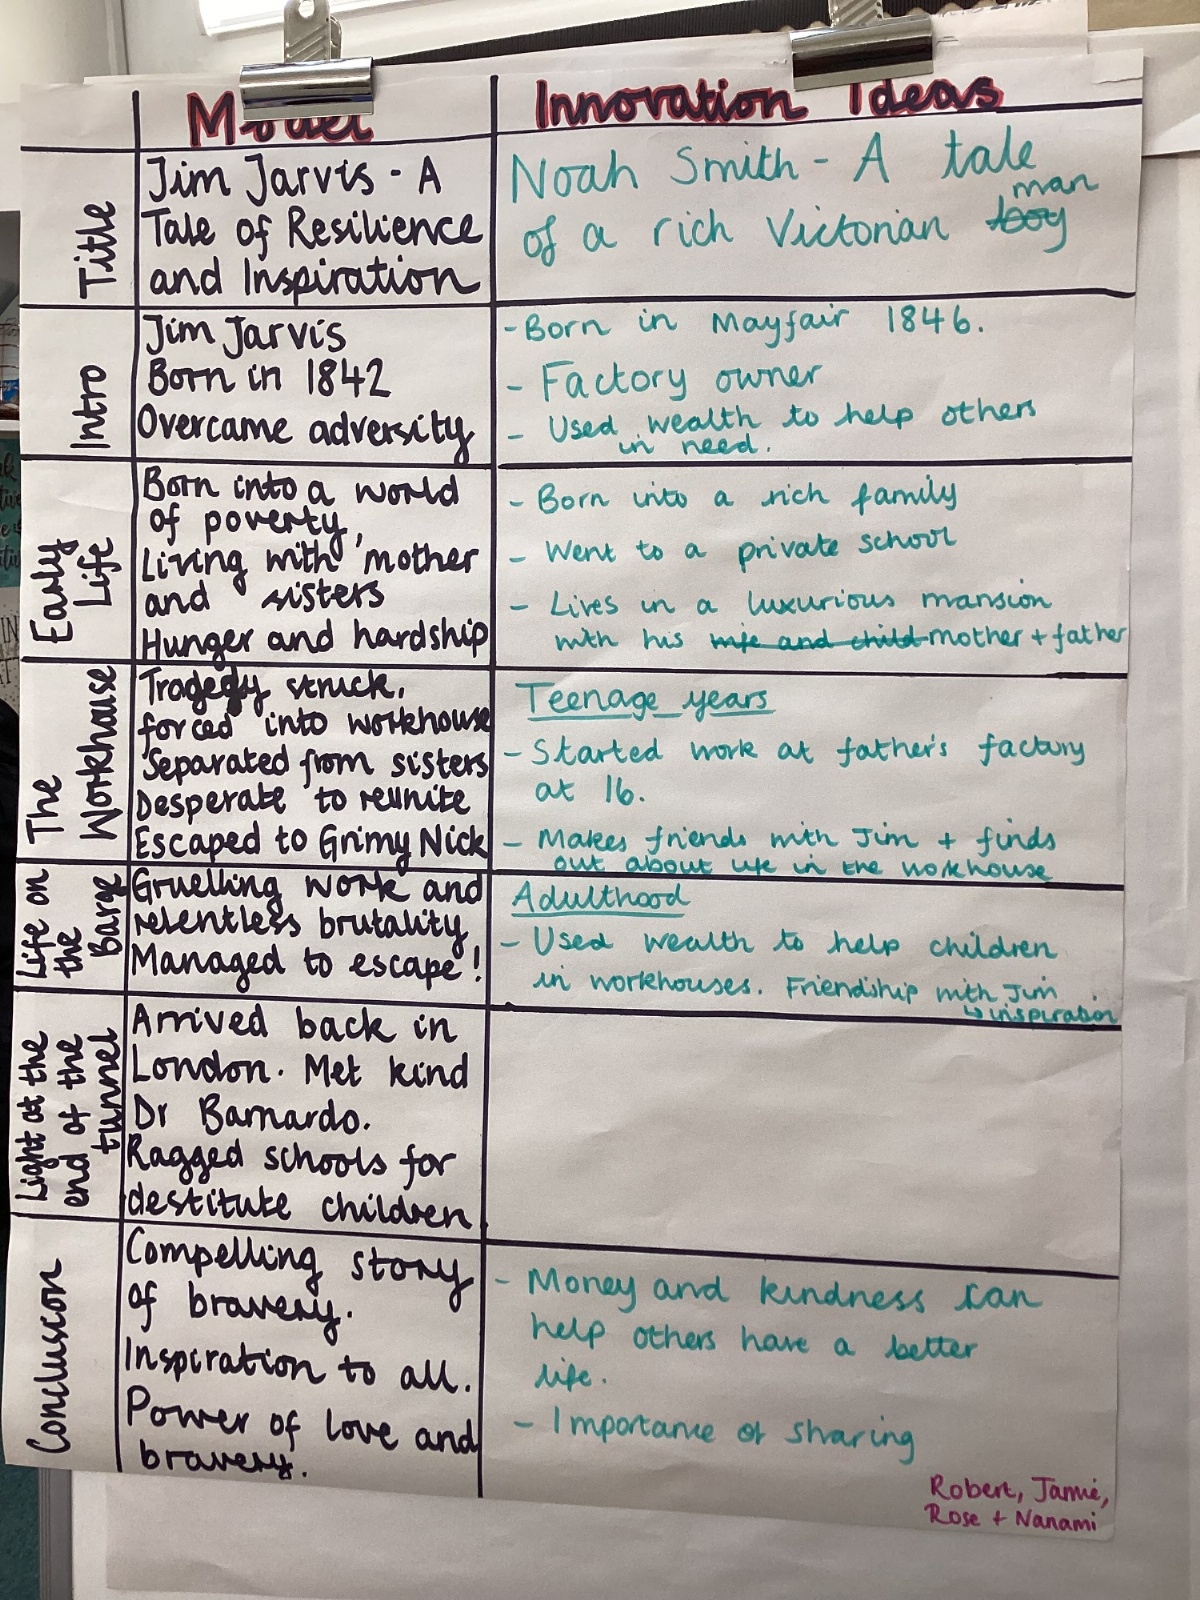 Model
Innovation Ideas
Title
Jim Jarvis - A
Tale of Resilience
and Inspiration
Noah Smith - A tale
man
of a rich Victorian boy
Intro
Jim Jarvis
Born in 1842
Overcame adversity
- Born in Mayfair 1846.
- Factory owner
- Used wealth to help others
in need.
Early
Life
Born into a world
of poverty,
Living with mother
and sisters
Hunger and hardship
- Born into a rich family
- Went to a private school
- Lives in a luxurious mansion
with his wife and child mother + father
The
Workhouse
Tragedy struck,
forced into workhouse
Separated from sisters
Desperate to reunite
Escaped to Grimy Nick
Teenage years
- Started work at father's factory
at 16.
- Makes friends with Jim + finds
out about life in the workhouse
Life on
the
Barge
Gruelling work and
relentless brutality
Managed to escape!
Adulthood
- Used wealth to help children
in workhouses. Friendship with Jim
↳ inspiration
Light at the
end of the
tunnel
Arrived back in
London. Met kind
Dr Barnardo.
Ragged schools for
destitute children
Conclusion
Compelling story
of bravery.
Inspiration to all.
Power of love and
bravery.
- Money and kindness can
help others have a better
life.
- Importance of sharing
Robert, Jamie,
Rose + Nanami